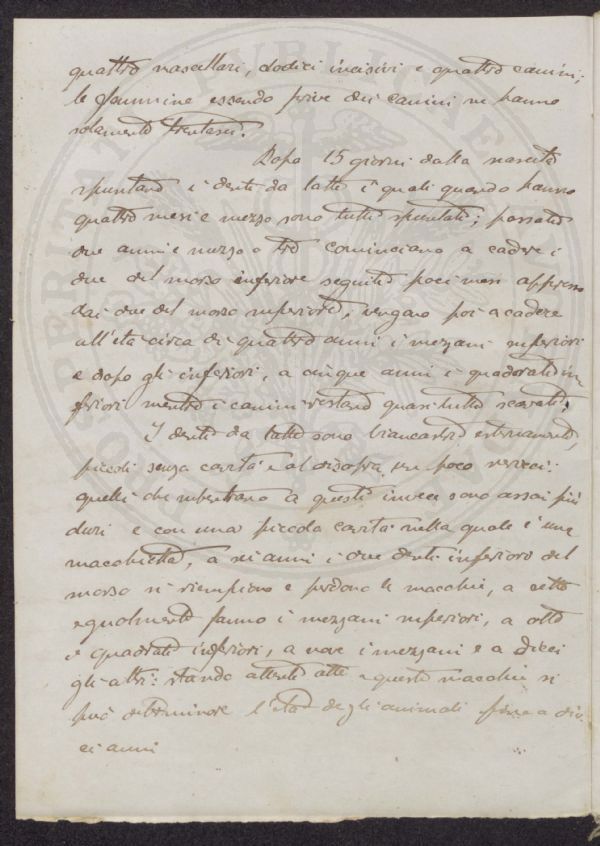 quattro mascellari, dodici incisivi e quattro canini;
le femmine essendo prive dei canini ne hanno
solamente trentasei.
Dopo 15 giorni dalla nascita
spuntano i denti da latte i quali quando hanno
quattro mesi e mezzo sono tutti spuntati; passati
due anni e mezzo o tre cominciano a cadere i
due del morso inferiore seguiti poci mesi appresso
dai due del morso superiore, vengano poi a cadere
all'età circa di quattro anni i mezzani superiori
e dopo gli inferiori, a cinque anni i quadrati in
feriori mentre i canini restano quasi tutti scavati.
I denti da latte sono biancastri esternamente,
piccoli senza cavità e al disopra un poco
quelli che subentrano a questi invece sono assai più
duri e con una piccola cavità nella quale è una
macchietta, a sei anni i due denti inferiori del
morso si riempiono e perdono le macchie, a sette
egualmente fanno i mezzani superiori, a otto
i quadrati inferiori, a nove i mezzani e a dieci
gli altri: stando attenti alle queste macchie si
può determinare l'età degli animali fino a die
ci anni
PROSPERITATI PUBLICAE